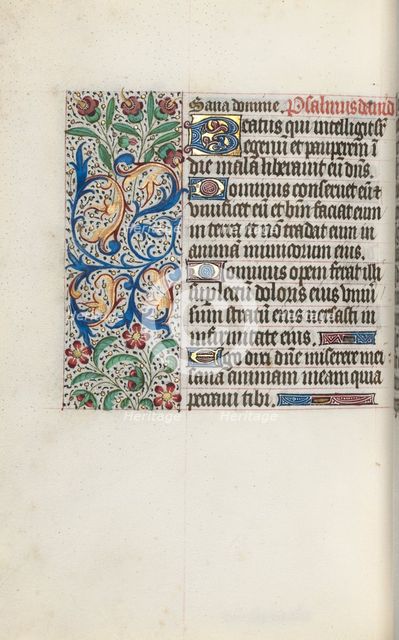 Sana domine. Psalmus david
Beatus qui intelligit sr̄
egenū et pauperem ī
die mala liberavit eū dn̄s.
Dominus conservet eū ⁊
vivificet eū et btm̄ faciat eum
in terra et nō tradat eum in
animā inimicorum eius.
Dominus opem ferat illi
lectū doloris eius vniv̄
sum stratū eius versasti in
infirmitate eius.
Ego dixi dn̄e miserere mei
sana animam meam quia
peccavi tibi.
Heritage
Heritage